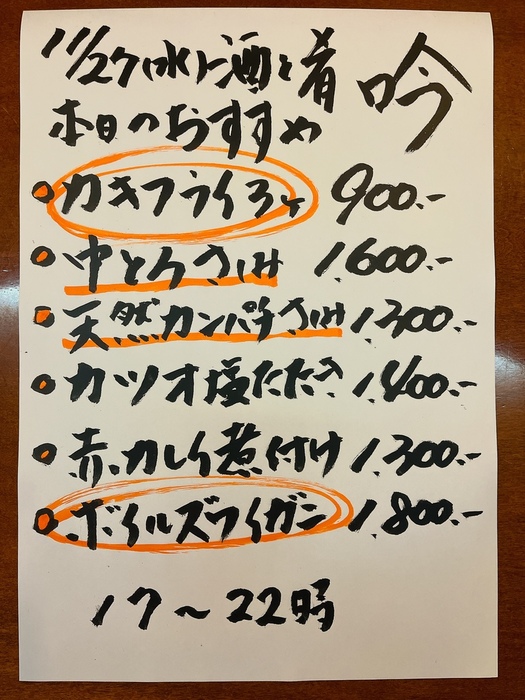 11/27(水)酒と肴 吟
本日のおすすめ
カキフライ3ヶ 900.-
中とろさしみ 1.600.-
天然カンパチさしみ 1.300.-
カツオ塩たたき 1.400.-
赤カレイ煮付け 1.300.-
ボイルズワイガニ 1.800.-
17〜22時